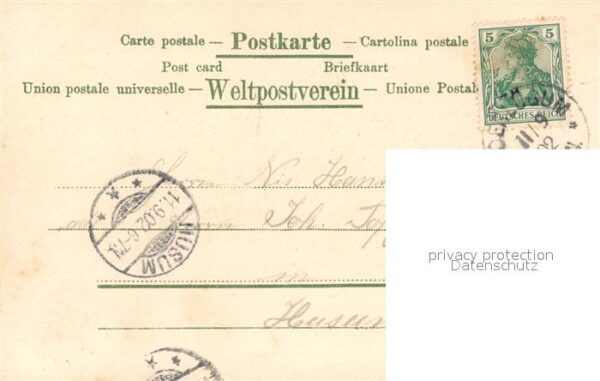 Carte postale — Postkarte — Cartolina postale
Post card Briefkaart
Union postale universelle — Weltpostverein — Unione Postal
5 5
DEUTSCHES REICH
11/9
02
Herrn
Joh.
in
Husum
HUSUM
11.9.02.6-7N.
privacy protection
Datenschutz